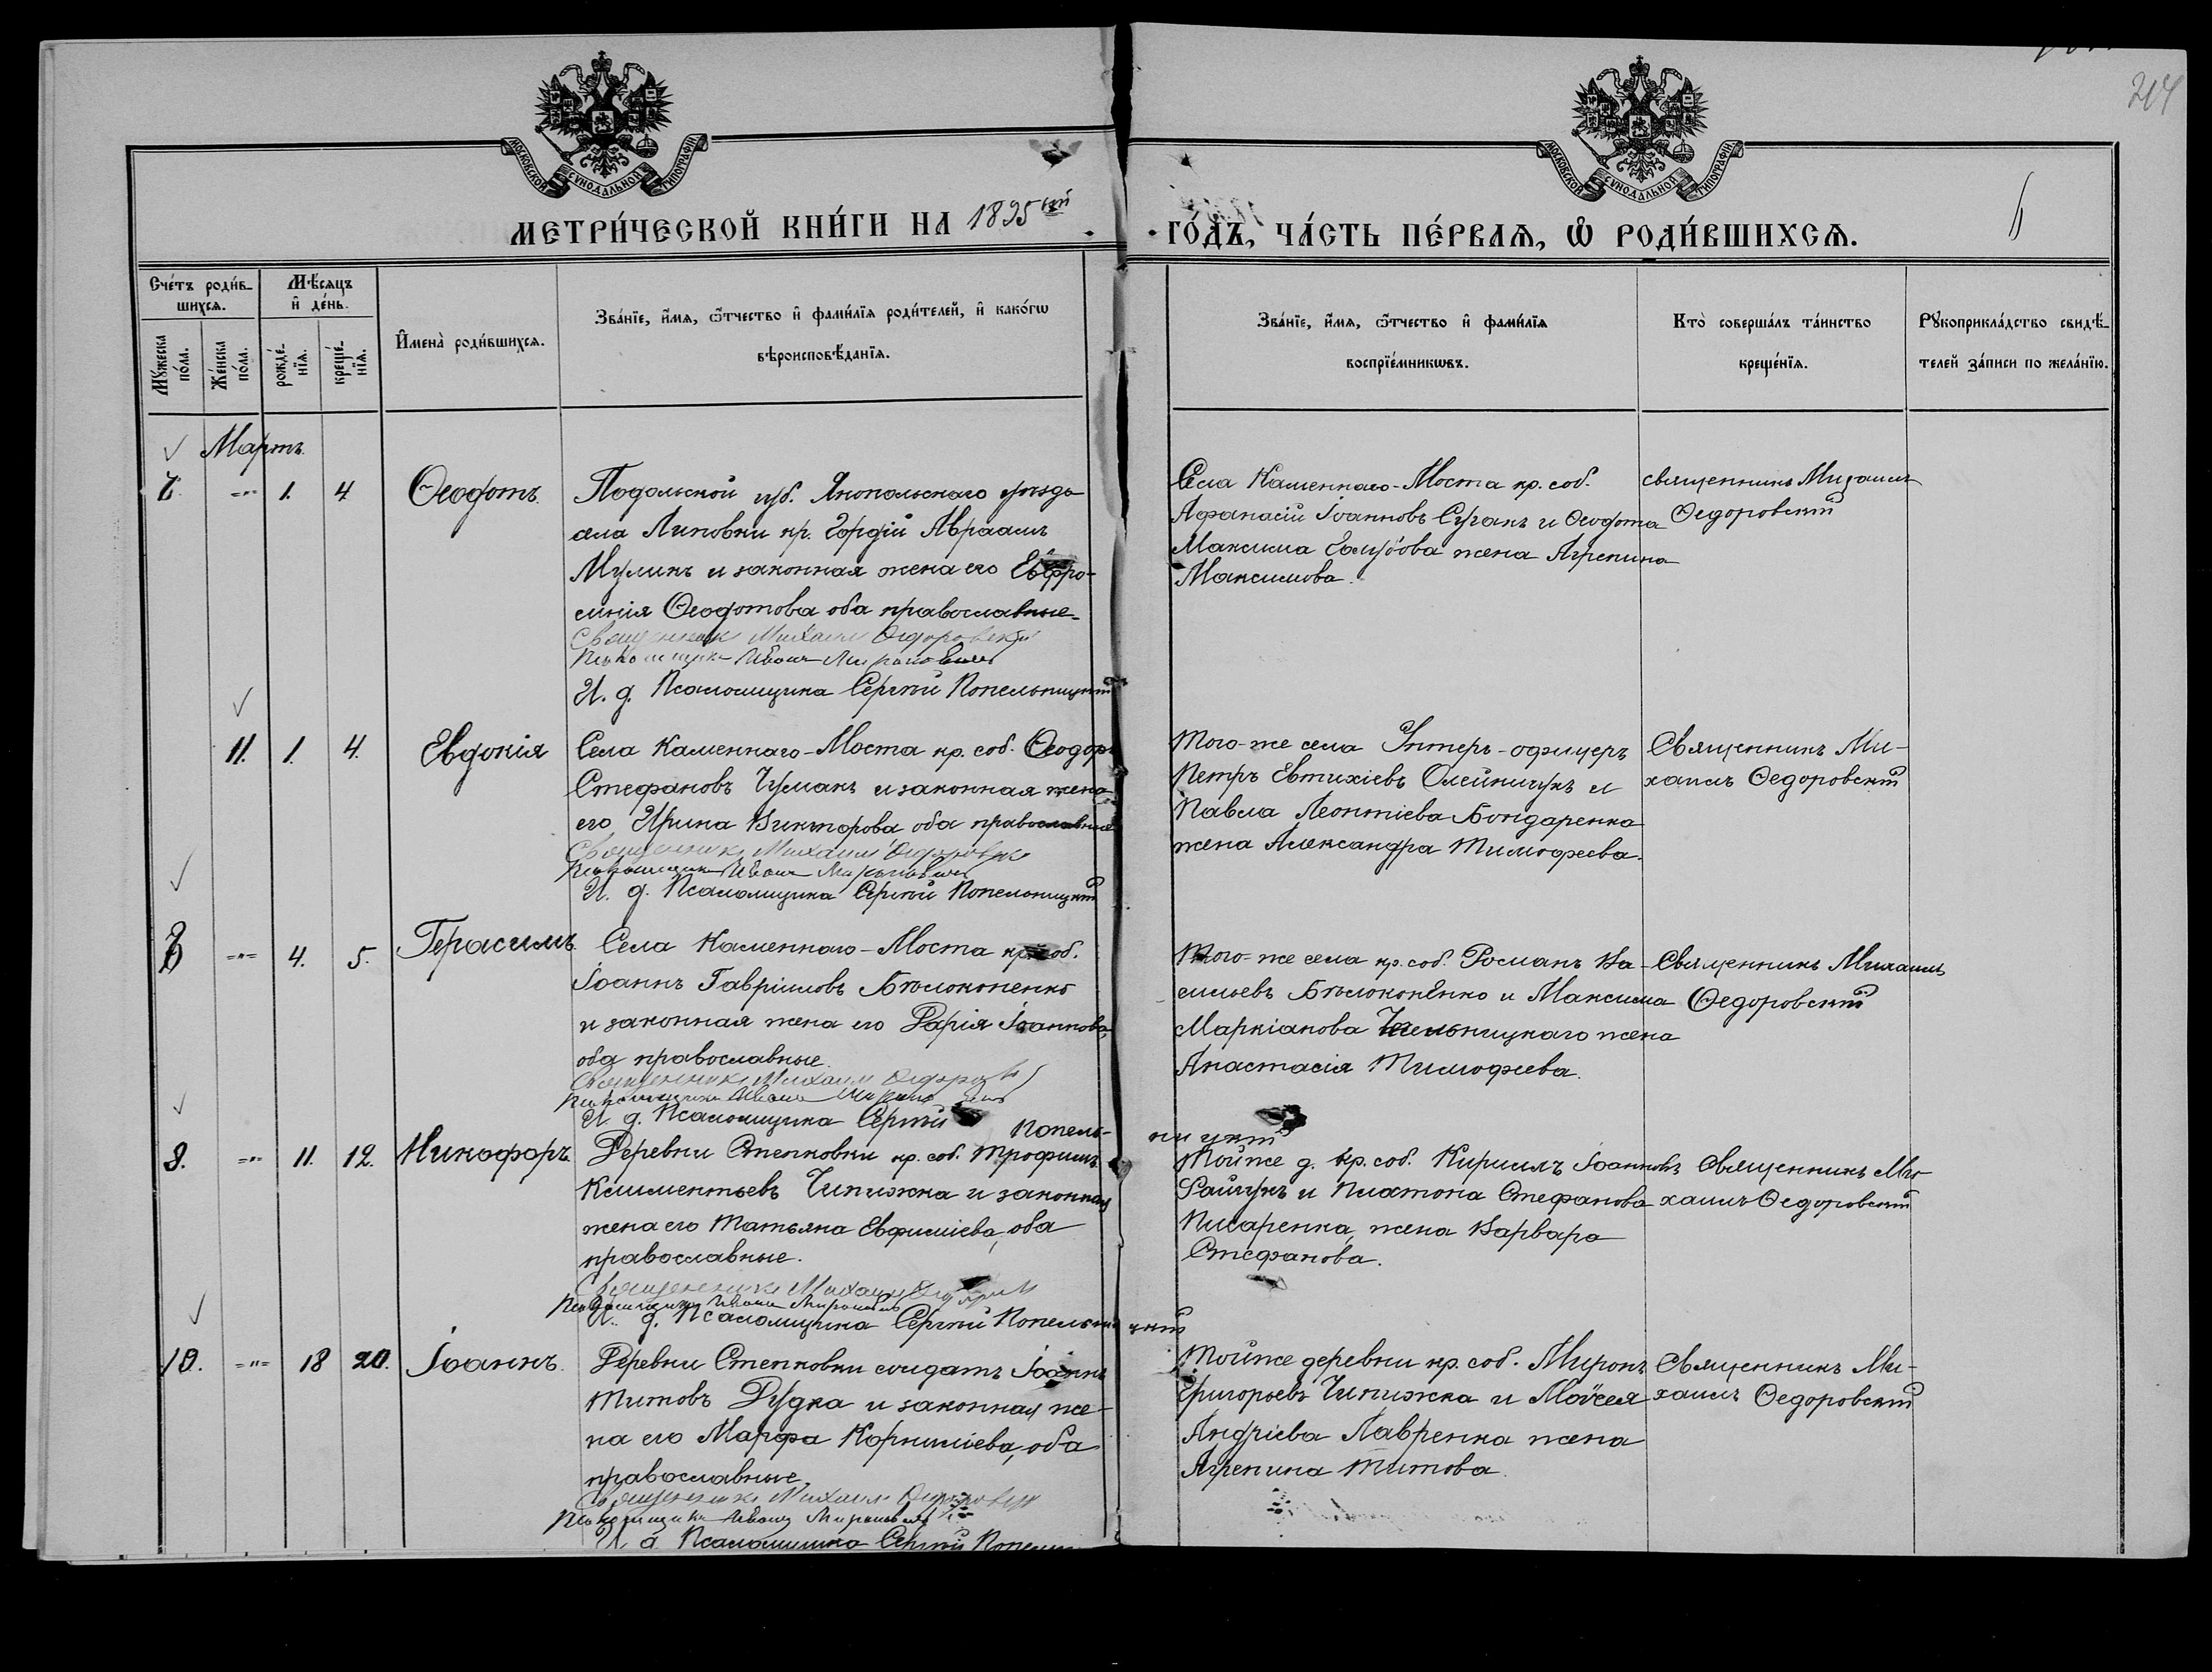 214
МОСКОВСКОЙ СѴНОДАЛЬНОЙ ТИПОГРАФІИ
МОСКОВСКОЙ СѴНОДАЛЬНОЙ ТИПОГРАФІИ
МЕТРИ́ЧЕСКОЙ КНИ́ГИ НА 1895
ГО́ДЪ, ЧА́СТЬ ПЕ́РВАѦ, Ѡ РОДИ́ВШИХСѦ.
Сче́тъ роди́вшихсѧ.
Мѣ́сѧцъ и҆ де́нь.
И҆мена̀ роди́вшихсѧ.
Зва́нїе, и҆́мѧ, ѻ҆́тчество и҆ фами́лїѧ роди́телей, и҆ како́гѡ
вѣроисповѣ́данїѧ.
Зва́нїе, и҆́мѧ, ѻ҆́тчество и҆ фами́лїѧ
воспрїе́мникѡвъ.
Кто̀ соверша́лъ та́инство
креще́нїѧ.
Рꙋкоприкла́дство свидѣ́-
телей за́писи по жела́нїю.
Мꙋ́жеска по́ла.
Же́нска по́ла.
рожде́нїѧ.
креще́нїѧ.
Мартъ.
-"- 1. 4 Ѳеодотъ.
Подольской губ. Янопольскаго уѣзда
села Липовки кр. Гордій Авраамъ
Муликъ и законная жена его Евфро-
синія Ѳеодотова оба православные
Священникъ Михаилъ Ѳедоровскій
Псаломщикъ Иванъ Мироновичъ
И. д. Псаломщика Сергѣй Попельницкій
Села Каменнаго-Моста кр. соб.
Афанасій Іоанновъ Суганъ и Ѳеодота
Максима Голубова жена Агрепина
Максимова.
священникъ Михаилъ
Ѳедоровскій
11. 1. 4. Евдокія
Села Каменнаго-Моста кр. соб. Ѳеодоръ
Стефановъ Чумакъ и законная жена
его Ирина Викторова оба православные
Священникъ Михаилъ Ѳедоровскій
Псаломщикъ Иванъ Мироновичъ
И. д. Псаломщика Сергѣй Попельницкій
Того-же села Унтеръ-офицеръ
Петръ Евтихіевъ Олейничукъ и
Павла Леонтіева Бондаренка
жена Александра Тимофеева.
Священникъ Ми-
хаилъ Ѳедоровскій
-"- 4. 5. Герасимъ.
Села Каменнаго-Моста кр. соб.
Іоаннъ Гавріиловъ Бѣлоконенко
и законная жена его Дарія Іоаннова,
оба православные.
Священникъ Михаилъ
Псаломщикъ Иванъ
И. д. Псаломщика Сергѣй Попель-
ницкій
Того-же села кр. соб. Романъ Ва-
сильевъ Бѣлоконенко и Максима
Маркіанова жена
Анастасія Тимофеева.
Священникъ Михаилъ
Ѳедоровскій
9. -"- 11. 12. Никофоръ.
Деревни Степковки кр. соб. Трофимъ
Климентьевъ Чипижка и законная
жена его Татьяна Евфиміева, оба
православные.
Священникъ Михаилъ
Псаломщикъ Иванъ Мироновичъ
И. д. Псаломщика Сергѣй Попельницкій
Тойже д. кр. соб. Кирилъ Іоанновъ
Райчукъ и Платона Стефанова
Писаренка, жена Варвара
Стефанова.
Священникъ Ми-
хаилъ Ѳедоровскій
10. -"- 18 20. Іоаннъ.
Деревни Степковки солдатъ Іоаннъ
Титовъ Дудка и законная же-
на его Марфа Корниліева, оба
православные.
Священникъ Михаилъ Ѳедоровскій
Псаломщикъ Иванъ Мироновичъ
И. д. Псаломщика Сергѣй
Тойже деревни кр. соб. Миронъ
Григорьевъ Чипижка и Моѵсея
Андріева Лавренка жена
Агрепина Титова.
Священникъ Ми-
хаилъ Ѳедоровскій